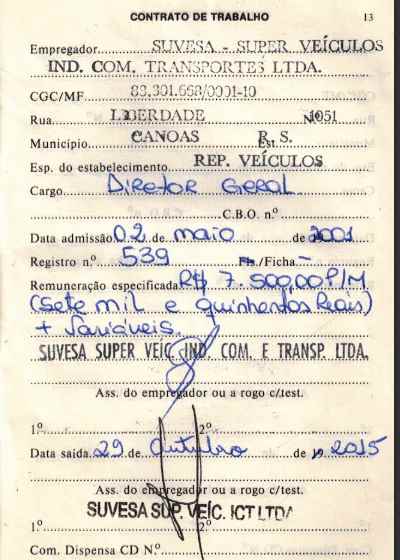 CONTRATO DE TRABALHO 13
Empregador SUVESA - SUPER VEÍCULOS
IND. COM. TRANSPORTES LTDA.
CGC/MF 88.301.668/0001-10
Rua LIBERDADE Nº 1051
Município CANOAS Est. R.S.
Esp. do estabelecimento REP. VEÍCULOS
Cargo Diretor Geral
C.B.O. n.º
Data admissão 02 de maio de 2001
Registro n.º 539 Fls./Ficha -
Remuneração especificada R$ 7.500,00 P/M
(sete mil e quinhentos Reais)
+ Variáveis.
SUVESA SUPER VEÍC. IND. COM. E TRANSP. LTDA.
Ass. do empregador ou a rogo c/test.
1º 2º
Data saída 29 de outubro de 19 2015
Ass. do empregador ou a rogo c/test.
SUVESA SUP. VEÍC. ICT LTDA
1º 2º
Com. Dispensa CD Nº